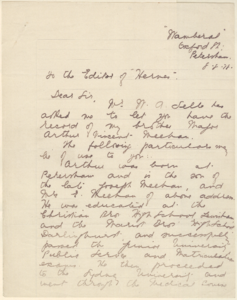 Oxford St.
Petersham
To the Editor of "Hermes"
Dear Sir,
Mr. N. A.
asked me to let you have the
record of my brother Major
Arthur Vincent Meehan.
The following particulars may
be of use to you.
Arthur was born at
Petersham and is the son of
the late Joseph Meehan, and
Mrs E Meehan of above address
He was educated at the
Christian Bro High School Lewisham
and the Marist Bro High School
Darlinghurst and successfully
passed the Junior, University
Public Service and Matriculation
exams. He then proceeded
to the Sydney University and
went through the Medical course